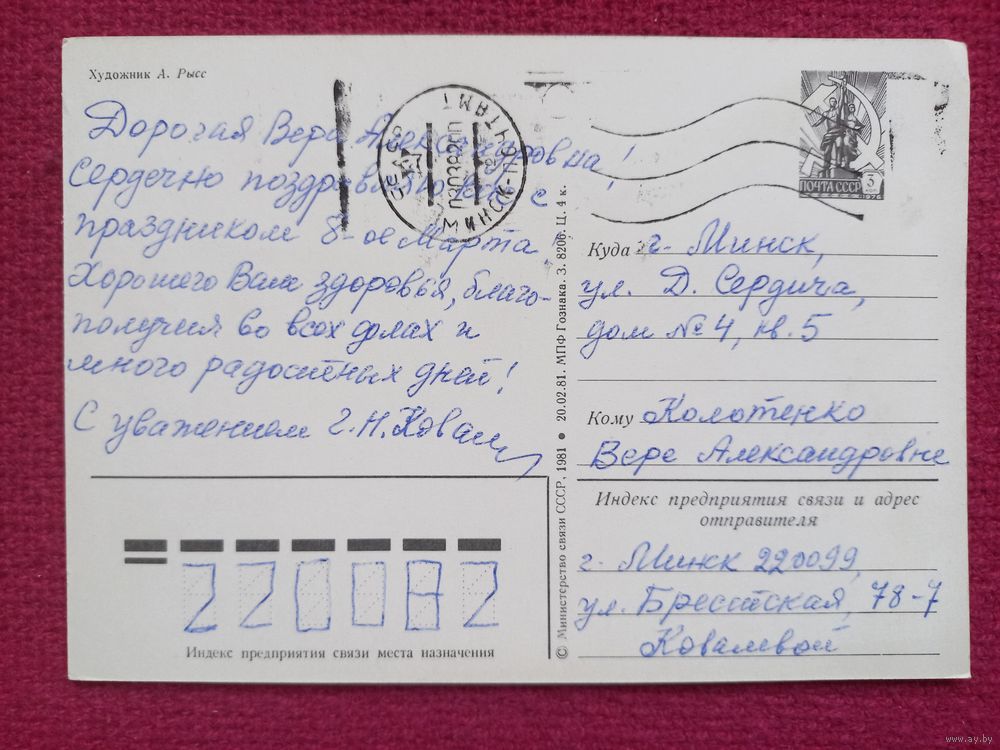 Художник А. Рысс
Дорогая Вера Александровна!
Сердечно поздравляю Вас с
праздником 8-ое Марта.
Хорошего Вам здоровья, благо-
получия во всех делах и
много радостных дней!
С уважением Г.Н. Ковал
МИНСК-ПОЧТАМТ
ПОЧТА СССР
3
КОП
1976
Куда г. Минск,
ул. Д. Сердича,
дом № 4, кв. 5
Кому Колотенко
Вере Александровне
Индекс предприятия связи и адрес
отправителя
г. Минск 220099,
ул. Брестская, 78-7
Ковалевой
220082
Индекс предприятия связи места назначения
© Министерство связи СССР, 1981 • 20.02.81. МПФ Гознака. З. 8206. Ц. 4 к.
www.ay.by